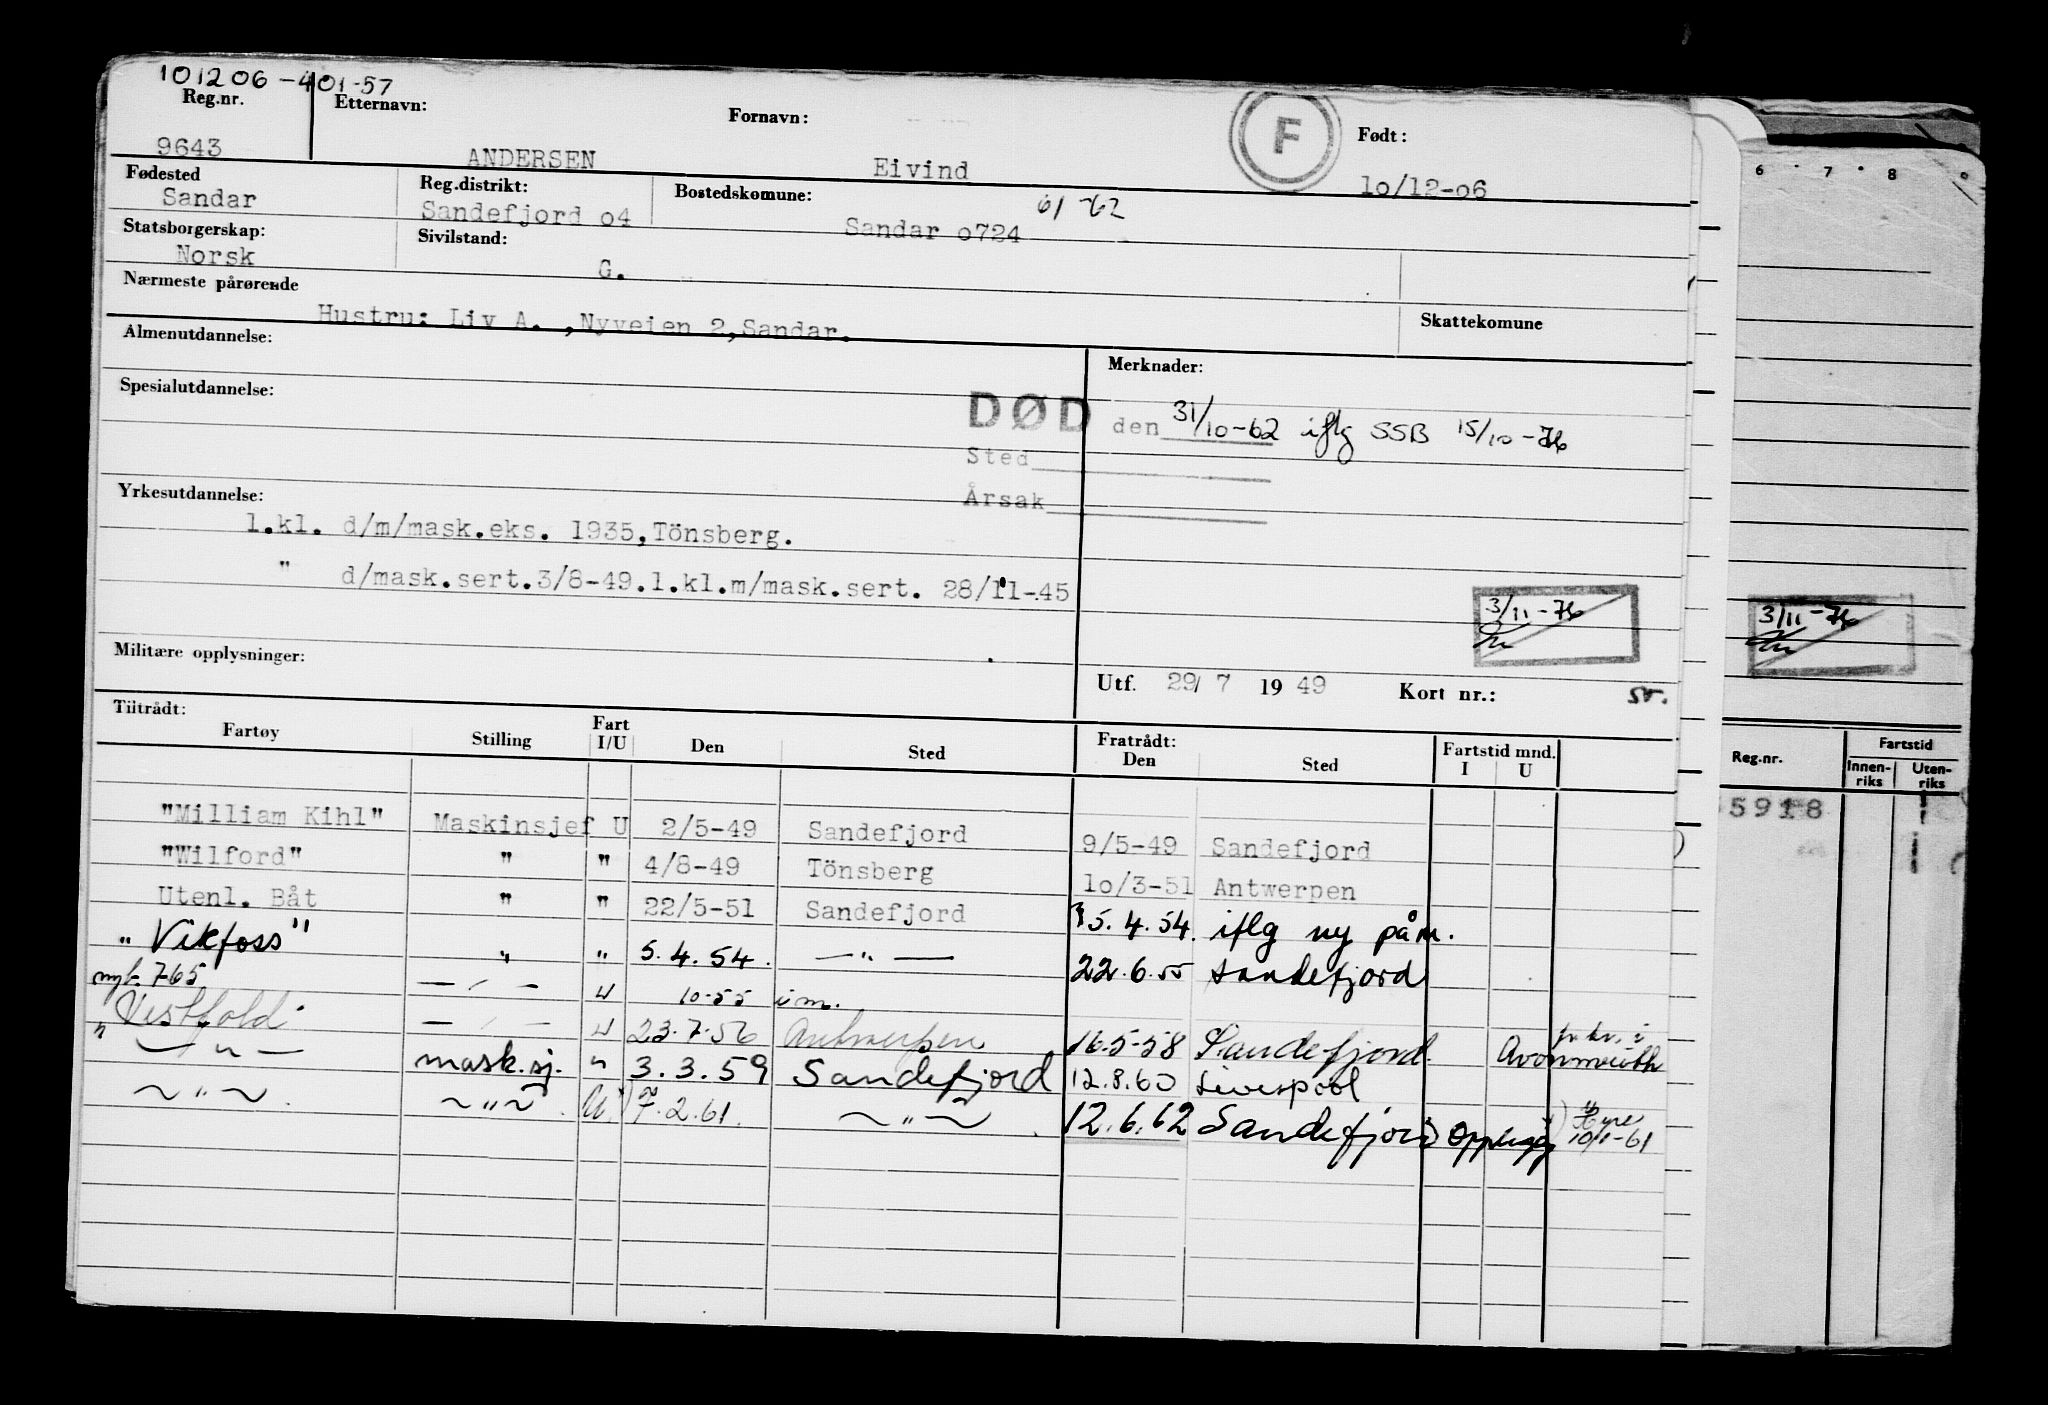 101206-401-57
Reg.nr. Etternavn: Fornavn: F Født:
9643 ANDERSEN Eivind 10/12-06
Fødested Reg.distrikt: Bostedskomune: 61-62
Sandar Sandefjord o4 Sandar o724
Statsborgerskap: Sivilstand:
Norsk G.
Nærmeste pårørende
Hustru: Liv A. ,Nyveien 2,Sandar. Skattekomune
Almenutdannelse: Merknader:
Spesialutdannelse:
DØD den 31/10-62 iflg SSB 15/10-76
Sted
Årsak
Yrkesutdannelse:
1.kl. d/m/mask.eks. 1935,Tönsberg.
" d/mask.sert.3/8-49.1.kl.m/mask.sert. 28/11-45
3/11-76
Militære opplysninger:
Utf. 29/ 7 19 49 Kort nr.:
Tiltrådt: Fratrådt: Fartstid mnd.
Fartøy Stilling Fart I/U Den Sted Den Sted I U
"Milliam Kihl" Maskinsjef U 2/5-49 Sandefjord 9/5-49 Sandefjord
"Wilford" " " 4/8-49 Tönsberg 1o/3-51 Antwerpen
Utenl. Båt " " 22/5-51 Sandefjord 5.4.54. iflg ny påm.
"Vikfoss" " " 5.4.54. — " — 22.6.55 Sandefjord
myt. 7-65 — " — " 10-55 im.
"Vestfold" — " — " 23.7.56 Antwerpen 16.5-58 Sandefjord. Avonmouth
— " — mask.sj. " 3.3.59 Sandefjord 12.8.60 Liverpool
~ " ~ ~ " ~ U 7.2.61. ~ " ~ 12.6.62 Sandefjord Opplegg Hyre 10/1-61
6 7 8
3/11-76
Reg.nr. Fartstid
Innen-riks Uten-riks
5918